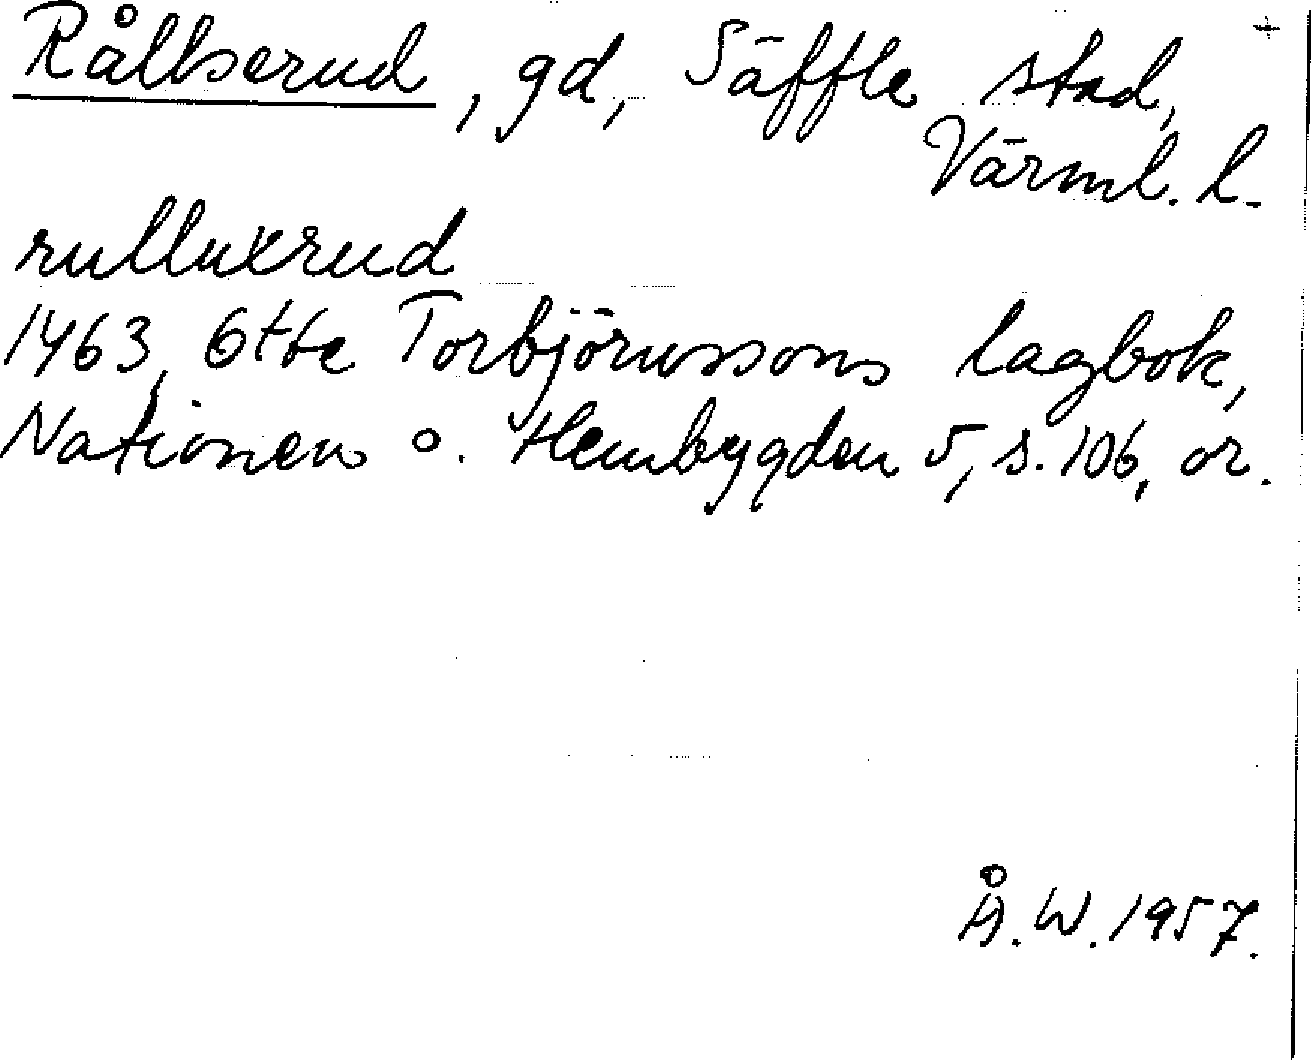 Rållserud, gd, Säffle stad, +
Värml. l.
rulluxrud
1463, Otte Torbjörnssons lagbok,
Nationen o. Hembygden 5, s. 106, or.
Å.W. 1957.